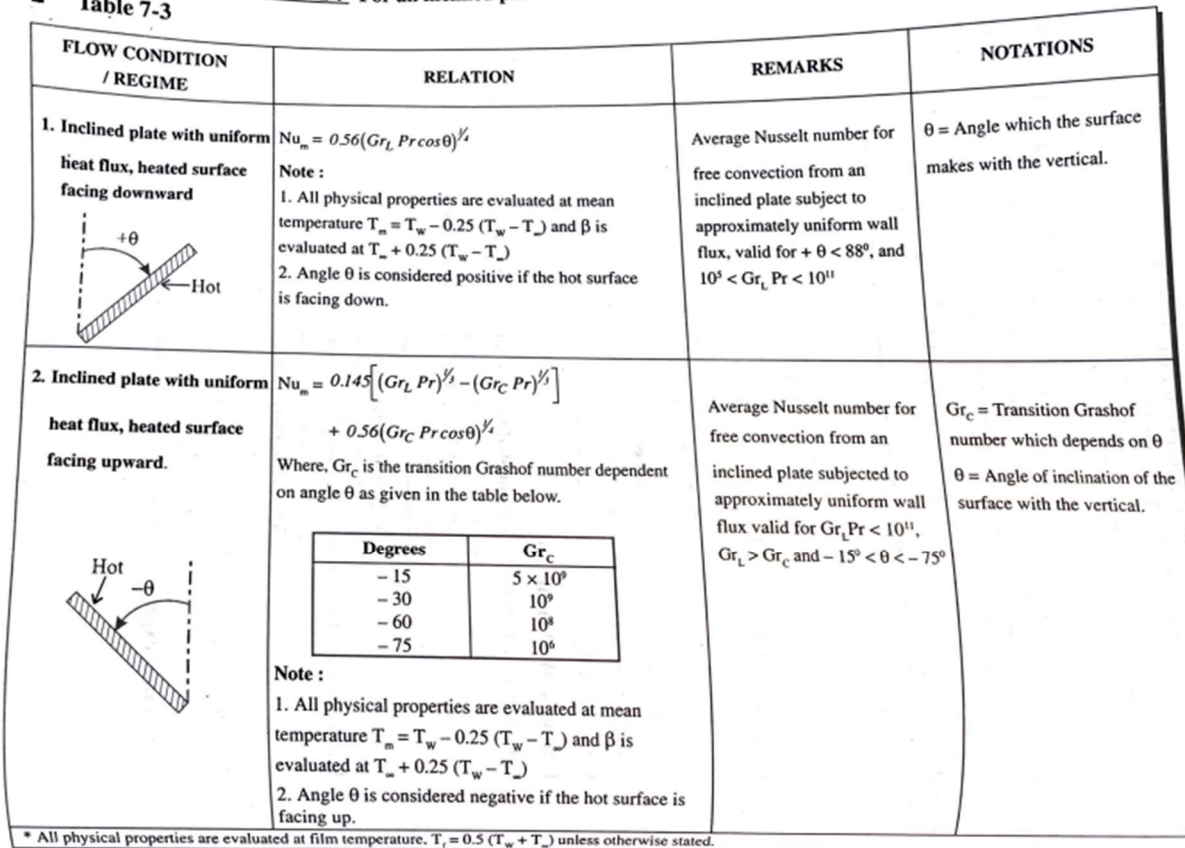 Table 7-3
FLOW CONDITION
/ REGIME
RELATION
REMARKS
NOTATIONS
1. Inclined plate with uniform
heat flux, heated surface
facing downward
+θ
Hot
Nu_m = 0.56(Gr_L Pr cosθ)^¼
Note :
1. All physical properties are evaluated at mean
temperature T_m = T_w – 0.25 (T_w – T_∞) and β is
evaluated at T_∞ + 0.25 (T_w – T_∞)
2. Angle θ is considered positive if the hot surface
is facing down.
Average Nusselt number for
free convection from an
inclined plate subject to
approximately uniform wall
flux, valid for + θ < 88⁰, and
10⁵ < Gr_L Pr < 10¹¹
θ = Angle which the surface
makes with the vertical.
2. Inclined plate with uniform
heat flux, heated surface
facing upward.
Hot
–θ
Nu_m = 0.145[(Gr_L Pr)^⅓ – (Gr_C Pr)^⅓]
+ 0.56(Gr_C Pr cosθ)^¼
Where, Gr_c is the transition Grashof number dependent
on angle θ as given in the table below.
Degrees Gr_c
– 15 5 × 10⁹
– 30 10⁹
– 60 10⁸
– 75 10⁶
Note :
1. All physical properties are evaluated at mean
temperature T_m = T_w – 0.25 (T_w – T_∞) and β is
evaluated at T_∞ + 0.25 (T_w – T_∞)
2. Angle θ is considered negative if the hot surface is
facing up.
Average Nusselt number for
free convection from an
inclined plate subjected to
approximately uniform wall
flux valid for Gr_L Pr < 10¹¹,
Gr_L > Gr_c and – 15⁰ < θ < – 75⁰
Gr_c = Transition Grashof
number which depends on θ
θ = Angle of inclination of the
surface with the vertical.
* All physical properties are evaluated at film temperature, T_f = 0.5 (T_w + T_∞) unless otherwise stated.